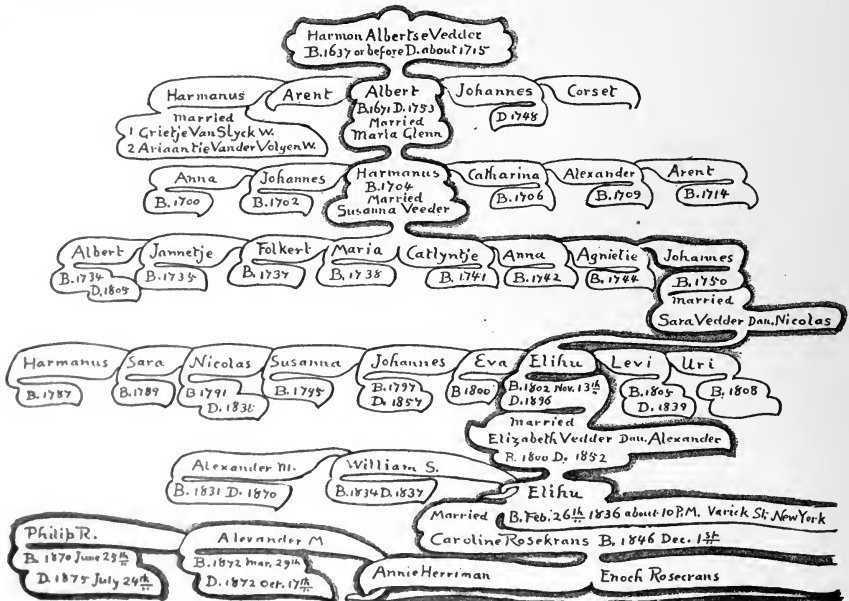 Harmon Albertse Vedder
B.1637 or before D. about 1715
Harmanus
married
1 Grietje Van Slyck W.
2 Ariaantie Vander Volgen W.
Arent
Albert
B.1671 D.1753
Married
Maria Glenn
Johannes
D 1748
Corset
Anna
B.1700
Johannes
B.1702
Harmanus
B.1704
Married
Susanna Veeder
Catharina
B.1706
Alexander
B.1709
Arent
B.1714
Albert
B.1734
D.1805
Jannetje
B.1735
Folkert
B.1737
Maria
B.1738
Catlyntje
B.1741
Anna
B.1742
Agnietie
B.1744
Johannes
B.1750
married
Sara Vedder Dau. Nicolas
Harmanus
B.1787
Sara
B.1789
Nicolas
B.1791
D.1831
Susanna
B.1795
Johannes
B.1797
D.1857
Eva
B 1800
Elihu
B.1802 Nov. 13th
D.1896
married
Elizabeth Vedder Dau. Alexander
B. 1800 D. 1852
Levi
B.1805
D.1839
Uri
B. 1808
Alexander M.
B.1831 D.1870
William S.
B.1834 D.1837
Elihu
B. Feb. 26th 1836 about 10 P.M. Varick St. New York
Married
Caroline Rosekrans B. 1846 Dec. 1st
Philip R.
B. 1870 June 25th
D. 1875 July 24th
Alexander M
B.1872 Mar. 29th
D.1872 Oct. 17th
Annie Herriman
Enoch Rosecrans